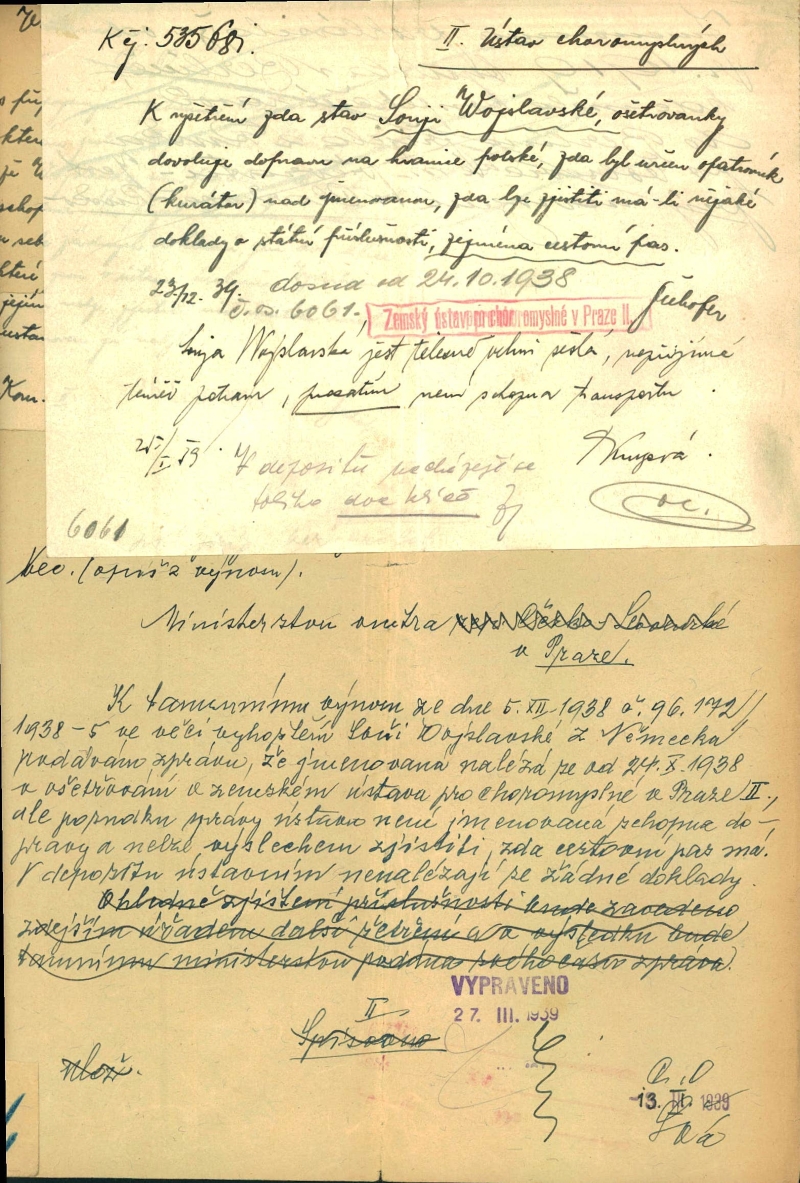 K čj: 53568i.
II. Ústav choromyslných
K vyšetření zda stav Sonji Wojslavské, ošetřovanky
dovoluje dopravu na hranice polské, zda byl určen opatrovník
(kurátor) nad jmenovanou, zda lze zjistiti má-li nějaké
doklady o státní příslušnosti, zejména cestovní pas.
23/12. 39. dosud od 24.10.1938
č. os. 6061.
Zemský ústav pro choromyslné v Praze II.
Sonja Wojslavská jest tělesně velmi sešlá, nepřijímá
téměř potravu, prozatím není schopna transportu.
25/I 39.
V depositu nacházejí se
toliko dva klíče
6061
Věc. (opiš z výnosu).
Ministerstvu vnitra
v Praze.
K tamnímu výnosu ze dne 5. XII. 1938 č. 96.172/
1938-5 ve věci vyhoštění Soni Vojslavské z Německa
podávám zprávu, že jmenovaná nalézá se od 24. X. 1938
v ošetřování v zemském ústavu pro choromyslné v Praze II.,
dle posudku správy ústavu není jmenovaná schopna do-
pravy a nelze výslechem zjistiti, zda cestovní pas má.
V depositu ústavním nenalézají se žádné doklady.
Ohledně zjištění příslušnosti bude zavedeno
zdejším úřadem další šetření a o výsledku bude
tamnímu ministerstvu podána svého času zpráva.
VYPRAVENO
27. III. 1939
II
13. III. 1939